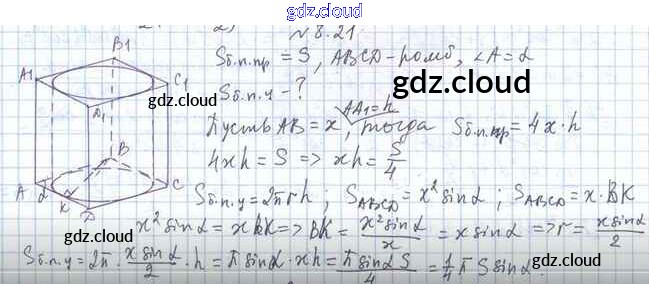 gdz.cloud
N 8.21
Sб.п.пр = S, ABCD - ромб, ∠A = α
gdz.cloud
Sб.п.ц - ?
gdz.cloud
AA1 = h
Пусть AB = x, тогда Sб.п.пр = 4x·h
4xh = S => xh = S/4
Sб.п.ц = 2πrh ; SABCD = x² sinα ; SABCD = x·BK
x² sinα = xBK => BK = x² sinα / x = x sinα => r = x sinα / 2
gdz.cloud
Sб.п.ц = 2π · x sinα / 2 · h = π sinα · xh = π sinα S / 4 = 1/4 π S sinα.
gdz.cloud
B1
A1
C1
D1
B
A
α
C
K
D